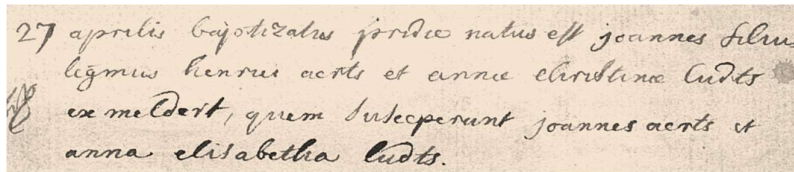 27 aprilis baptizatus pridie natus est joannes filius
legmus henrici aerts et annæ christinæ ludts
ex meldert, quem susceperunt joannes aerts et
anna elisabetha ludts.